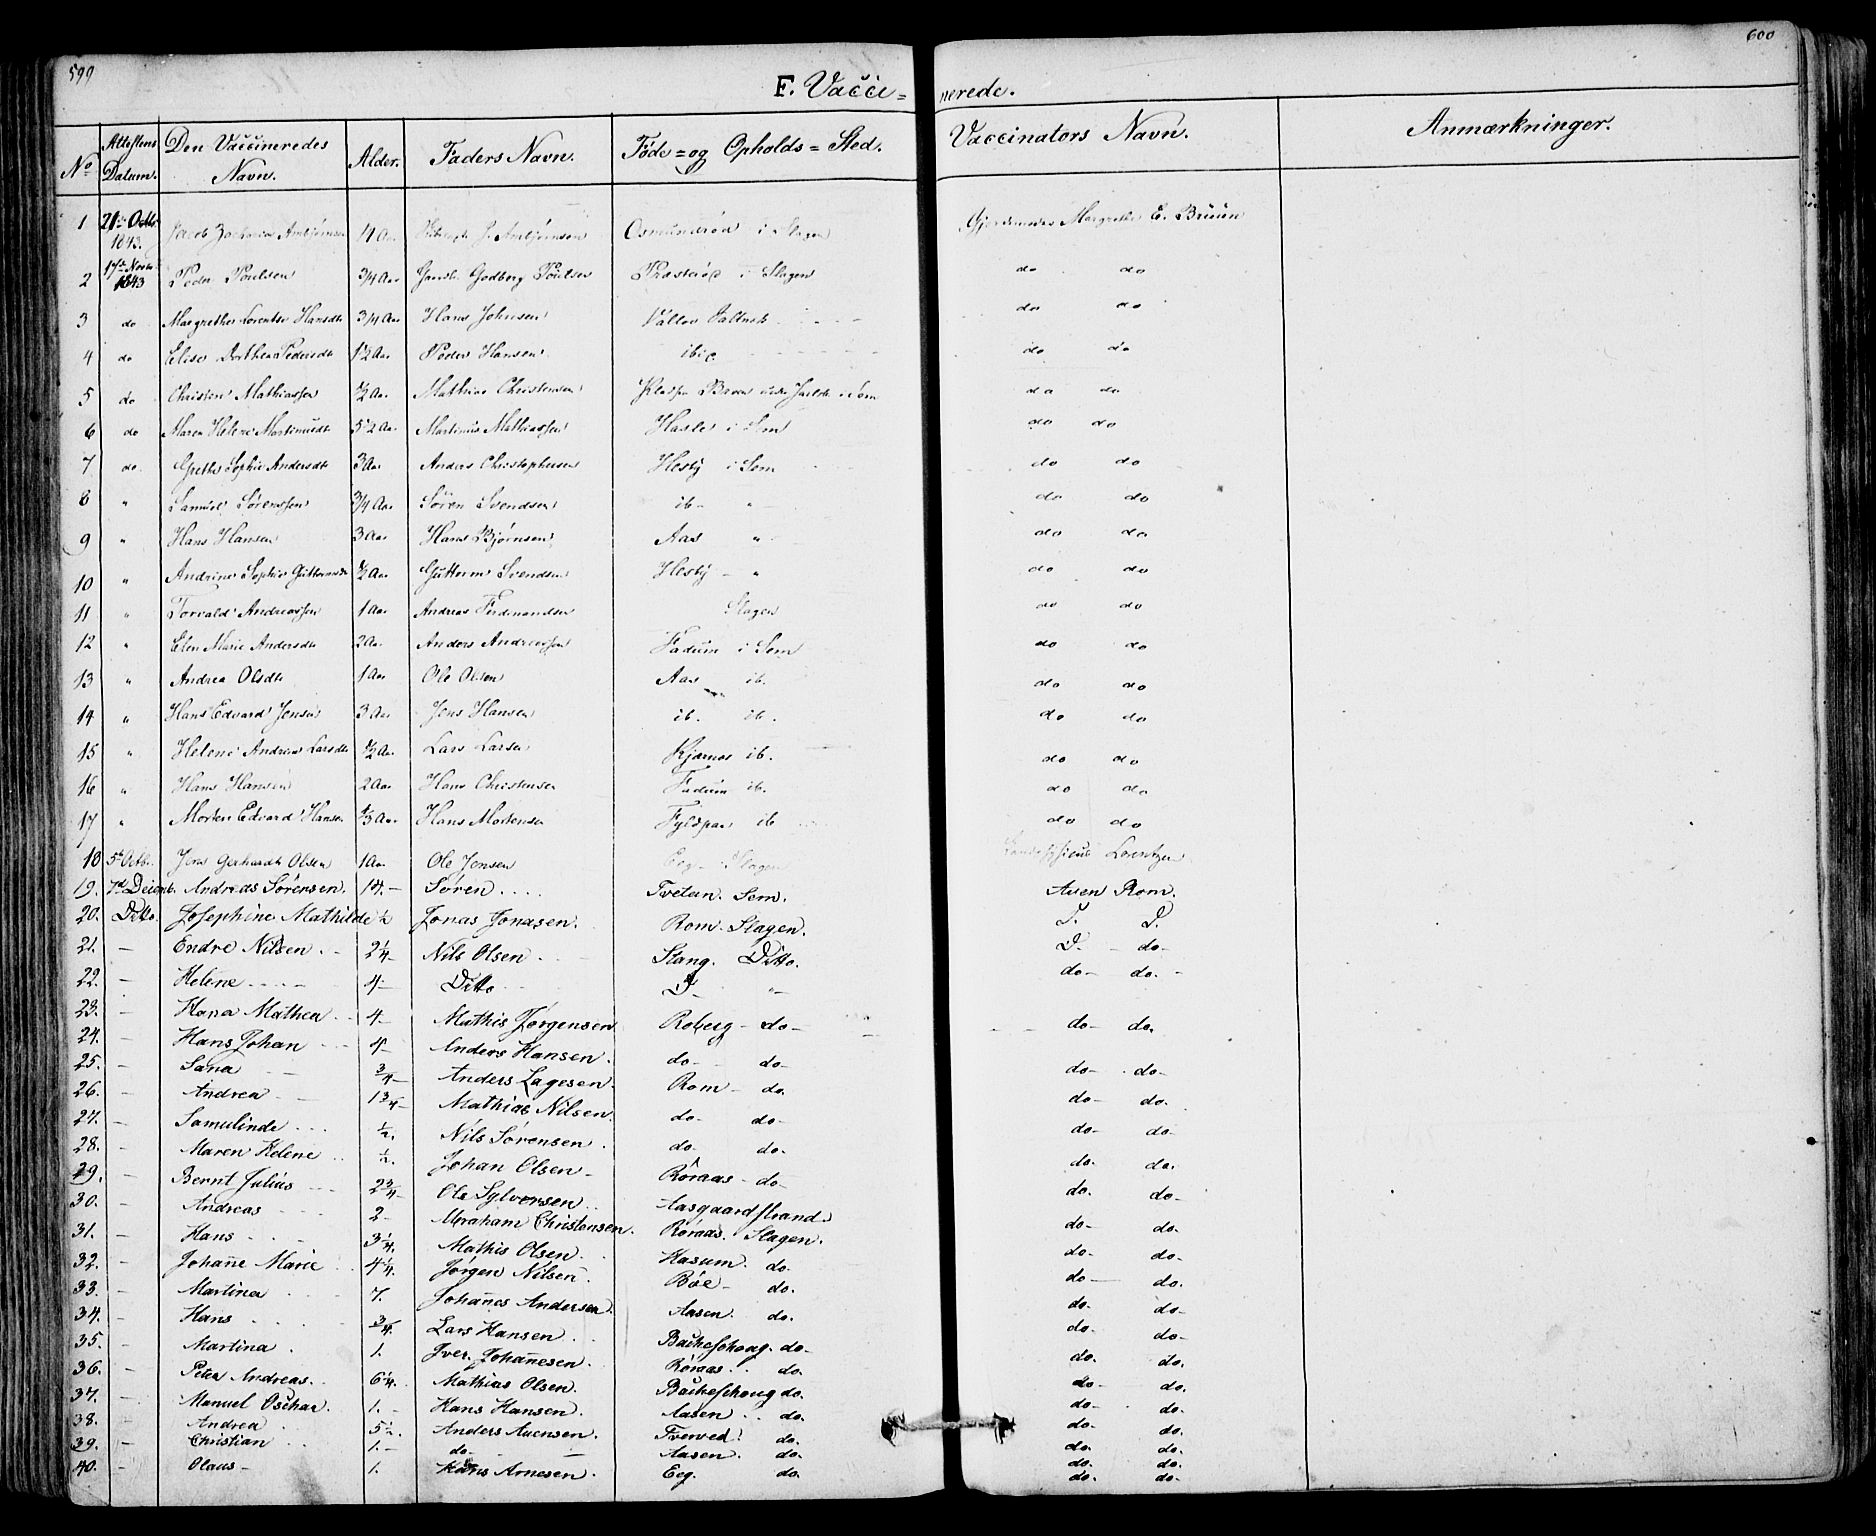 599
600
F. Vacci=nerede.
No Attestens Datum. Den Vaccineredes Navn. Alder. Faders Navn. Føde=og Opholds=Sted. Vaccinators Navn. Anmærkninger.
1 21de Octbr. 1843. Jacob Zacharias Ambjørnsen J. Ambjørnsen Osmundrød i Slagen Gjordemoder Margrethe E. Bruun
2 17de Novbr 1843 Peder Poulsen 3/4 Aar Godberg Poulsen i Slagen do do
3 do Margrethe Lorentse Hansdtr 3/4 Aar Hans Johnsen Valløe Saltverk do do
4 do Elise Dorthea Pedersdtr 1 1/2 Aar Peder Hansen ibid do do
5 do Christen Mathiassen 1/2 Aar Mathias Christensen do do
6 do Maren Helene Martinusdt 5 1/2 Aar Martinus Mathiassen Hasle i Sem do do
7 do Grethe Sophie Andersdtr 3 Aar Anders Christophersen Hesby i Sem do do
8 " Samuel Sørenssen 3/4 Aar Søren Svendsen ib. " do do
9 " Hans Hansen 3 Aar Hans Bjørnsen Aas " do do
10 " Andrine Sophie Guttormsdtr 1/2 Aar Guttorm Svendsen Hesby - " do do
11 " Torvald Andreassen 1 Aar Andreas Ferdinandsen Slagen do do
12 " Elen Marie Andersdtr 2 Aar Anders Andreassen Fadum i Sem do do
13 " Andrea Olsdtr 1 Aar Ole Olsen Aas ib. do do
14 " Hans Edvard Jensen 3 Aar Jens Hansen ib. ib. do do
15 " Helene Andrine Larsdtr 1/2 Aar Lars Larsen Kjærnes ib. do do
16 " Hans Hansen 2 Aar Hans Christensen Fadum ib. do do
17 " Morten Edvard Hansen 1/3 Aar Hans Mortensen Fyldpaa ib do do
18 5te Octb. Jens Gerhardt Olsen 1 Aar Ole Jensen Eeg i Slagen Landsphysicus Lorentzen
19. 7d Decemb. Andreas Sørensen. 14. - Søren .... Tvetan. Sem. Aven Rom.
20. Ditto. Josephine Mathilde 1/2 Jonas Jonasen. Rom. Slagen. D. D.
21. - Endre Nilsen . - 2 1/4 - Nils Olsen Slang. Ditto. D. - do-
22. - Helene - - - - 4 - Ditto D - " do - do. -
23. - Hana Mathea 4 - Mathis Jørgensen Roberg - do - do - do.
24. - Hans Johan 4 - Anders Hansen. do - do - do - do-
25. - Sana 3/4 - Anders Lagesen. Rom - do. do - do.
26. - Andrea 1 3/4 - Mathias Nilsen do - do. do - do-
27. - Samulinde ... 1/2. Nils Sørensen. do. do. do. do.
28. - Maren Helene .. 1/2. Johan Olsen - Røraas - do - do. do-
29. - Bernt Julius 2 3/4 - Ole Sylversen Aasgaardstrand. do - do.
30. - Andreas 2 - Abraham Christensen. Røraas. Slagen. do - do.
31. - Hans 3 1/4. Mathis Olsen Hasum. do. do - do.
32. - Johanne Marie 4 1/4. Jørgen Nilsen. Bøe - do. do. do-
33. - Martina 7. Johanes Andersen. Aasen. do. do. do-
34. - Hans 3/4. Lars Hansen Backeshoug. do - do. do.
35. - Martina. 1. Iver Johanesen. Røraas. do. do - do.
36. - Peter Andreas. 6 1/4. Mathias Olsen. Backeshoug do. do - do.
37. - Manuel Oschar. 1. - Hans Hansen. Aasen do. do. do.
38. - Andrea 5 1/2. Anders Auensen. Tverved do. do. do.
39. - Christian 1. - do - Aasen. do. do. do.
40. - Olaus - 1. Hans Arnesen. Eeg. do. do. do-